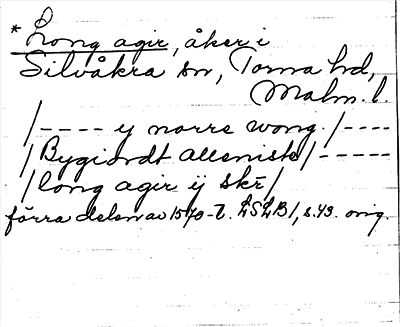 * Long agir, åker i
Silvåkra sn, Torna hd,
Malm. l.
/---- ij norre wong /----
/Bygiordt allsnisk/-----
/long agir ij skr̄/
förra delen av 1570-t. LSLB1, s. 43. orig.